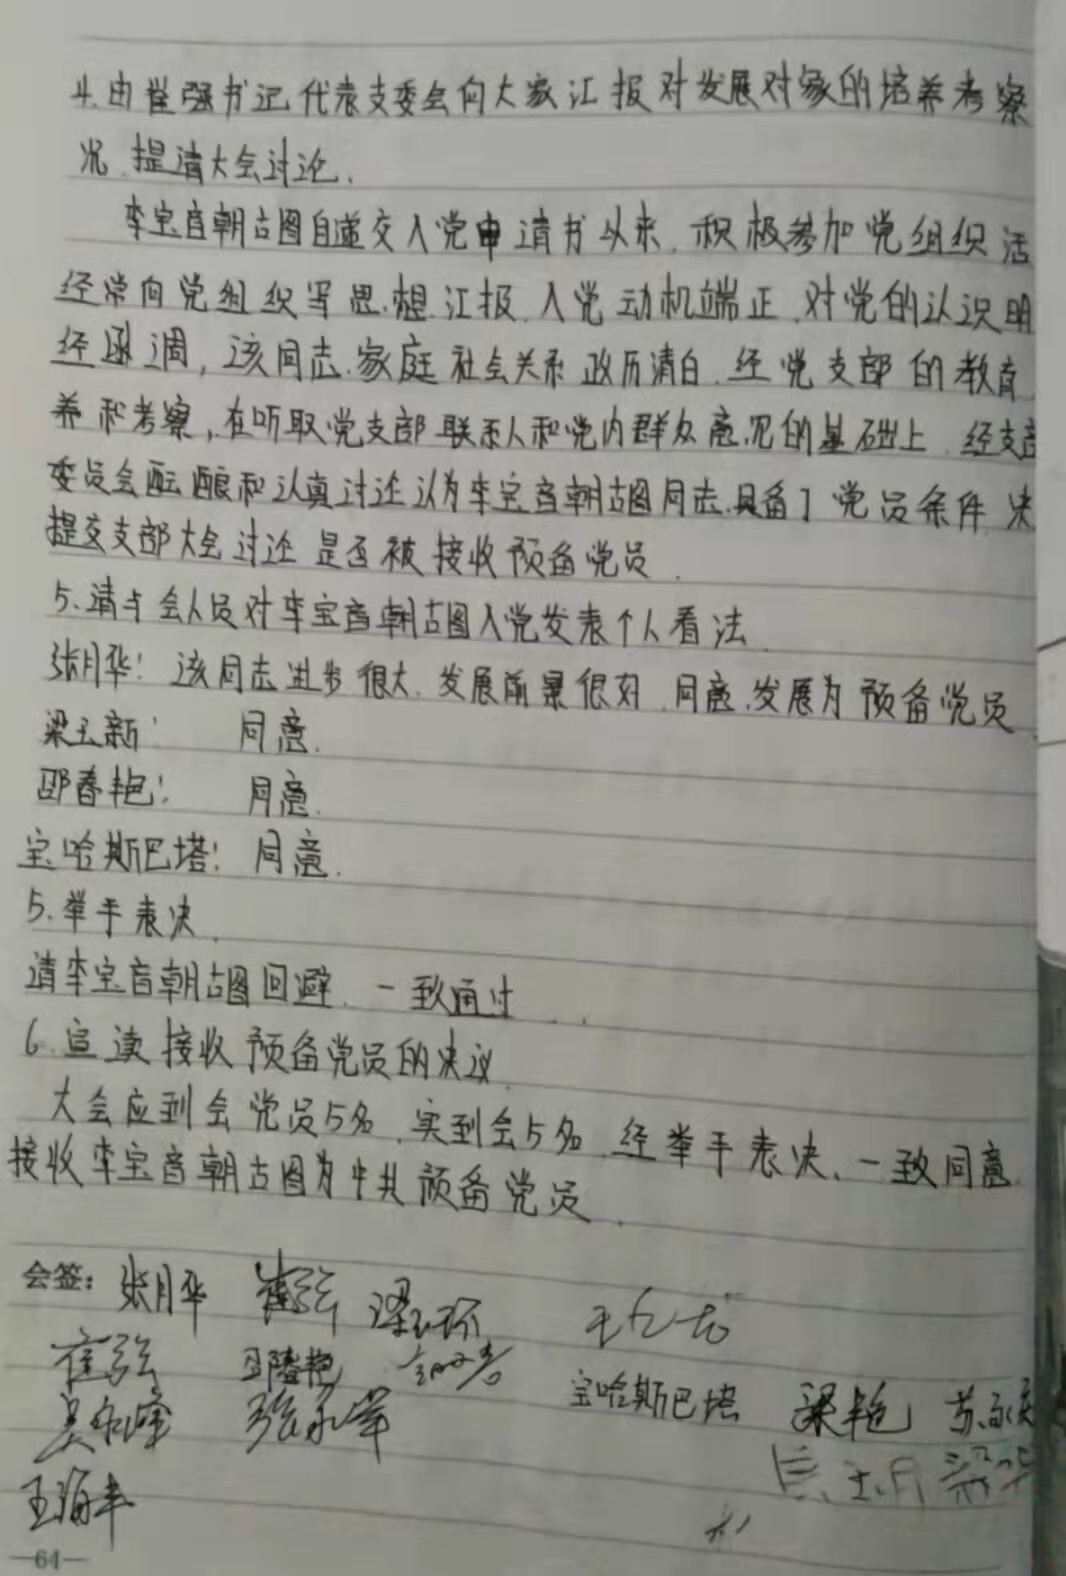 4.由崔强书记代表支委会向大家汇报对发展对象的培养考察
况.提请大会讨论.
李宝音朝古图自递交入党申请书以来,积极参加党组织活
经常向党组织写思想汇报.入党动机端正.对党的认识明
经函调,该同志家庭社会关系政历清白.经党支部的教育
养和考察,在听取党支部联系人和党内群众意见的基础上.经支部
委员会酝酿和认真讨论认为李宝音朝古图同志具备了党员条件 决
提交支部大会讨论是否被接收预备党员.
5.请与会人员对李宝音朝古图入党发表个人看法.
张月华:该同志进步很大.发展前景很好.同意发展为预备党员
梁玉新: 同意.
邵春艳: 同意.
宝哈斯巴塔: 同意.
5.举手表决.
请李宝音朝古图回避.一致通过..
6.宣读接收预备党员的决议.
大会应到会党员5名.实到会5名.经举手表决,一致同意
接收李宝音朝古图为中共预备党员.
会签: 张月华 崔强
崔强 宝哈斯巴塔 梁艳 苏永
张永军
王海丰
—64—